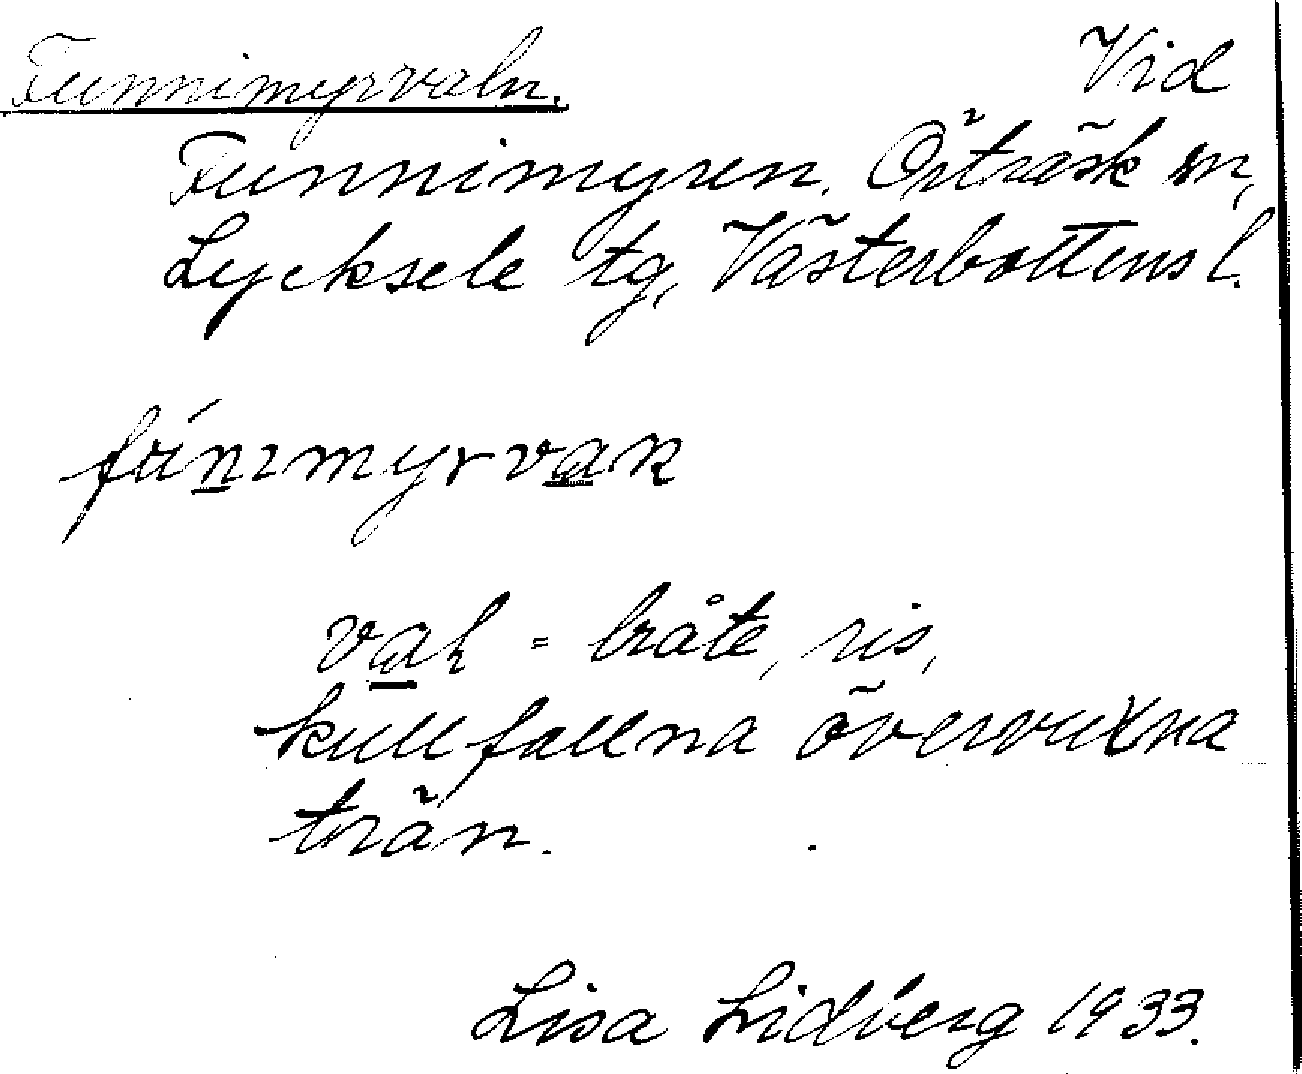 Funnimyrvaln. Vid
Funnimyren. Örträsk sn,
Lycksele tg, Västerbottens l.
val = bråte, ris,
kullfallna övervuxna
trän.
Lisa Lidberg 1933.